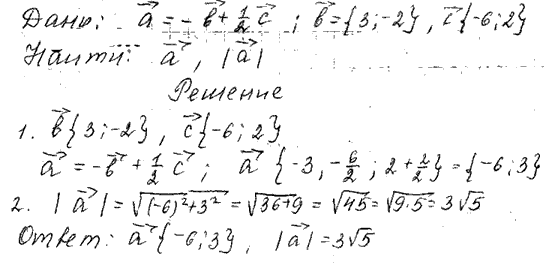 Даны: a⃗ = - b⃗ + 1/2 c⃗ ; b⃗ = {3;-2}, c⃗{-6;2}
Найти: a⃗, |a⃗|
Решение
1. b⃗{3;-2}, c⃗{-6;2}
a⃗ = -b⃗ + 1/2 c⃗; a⃗ {-3, -6/2; 2+2/2} = {-6;3}
2. |a⃗| = √((-6)²+3²) = √(36+9) = √45 = √(9·5) = 3√5
Ответ: a⃗{-6;3}, |a⃗| = 3√5